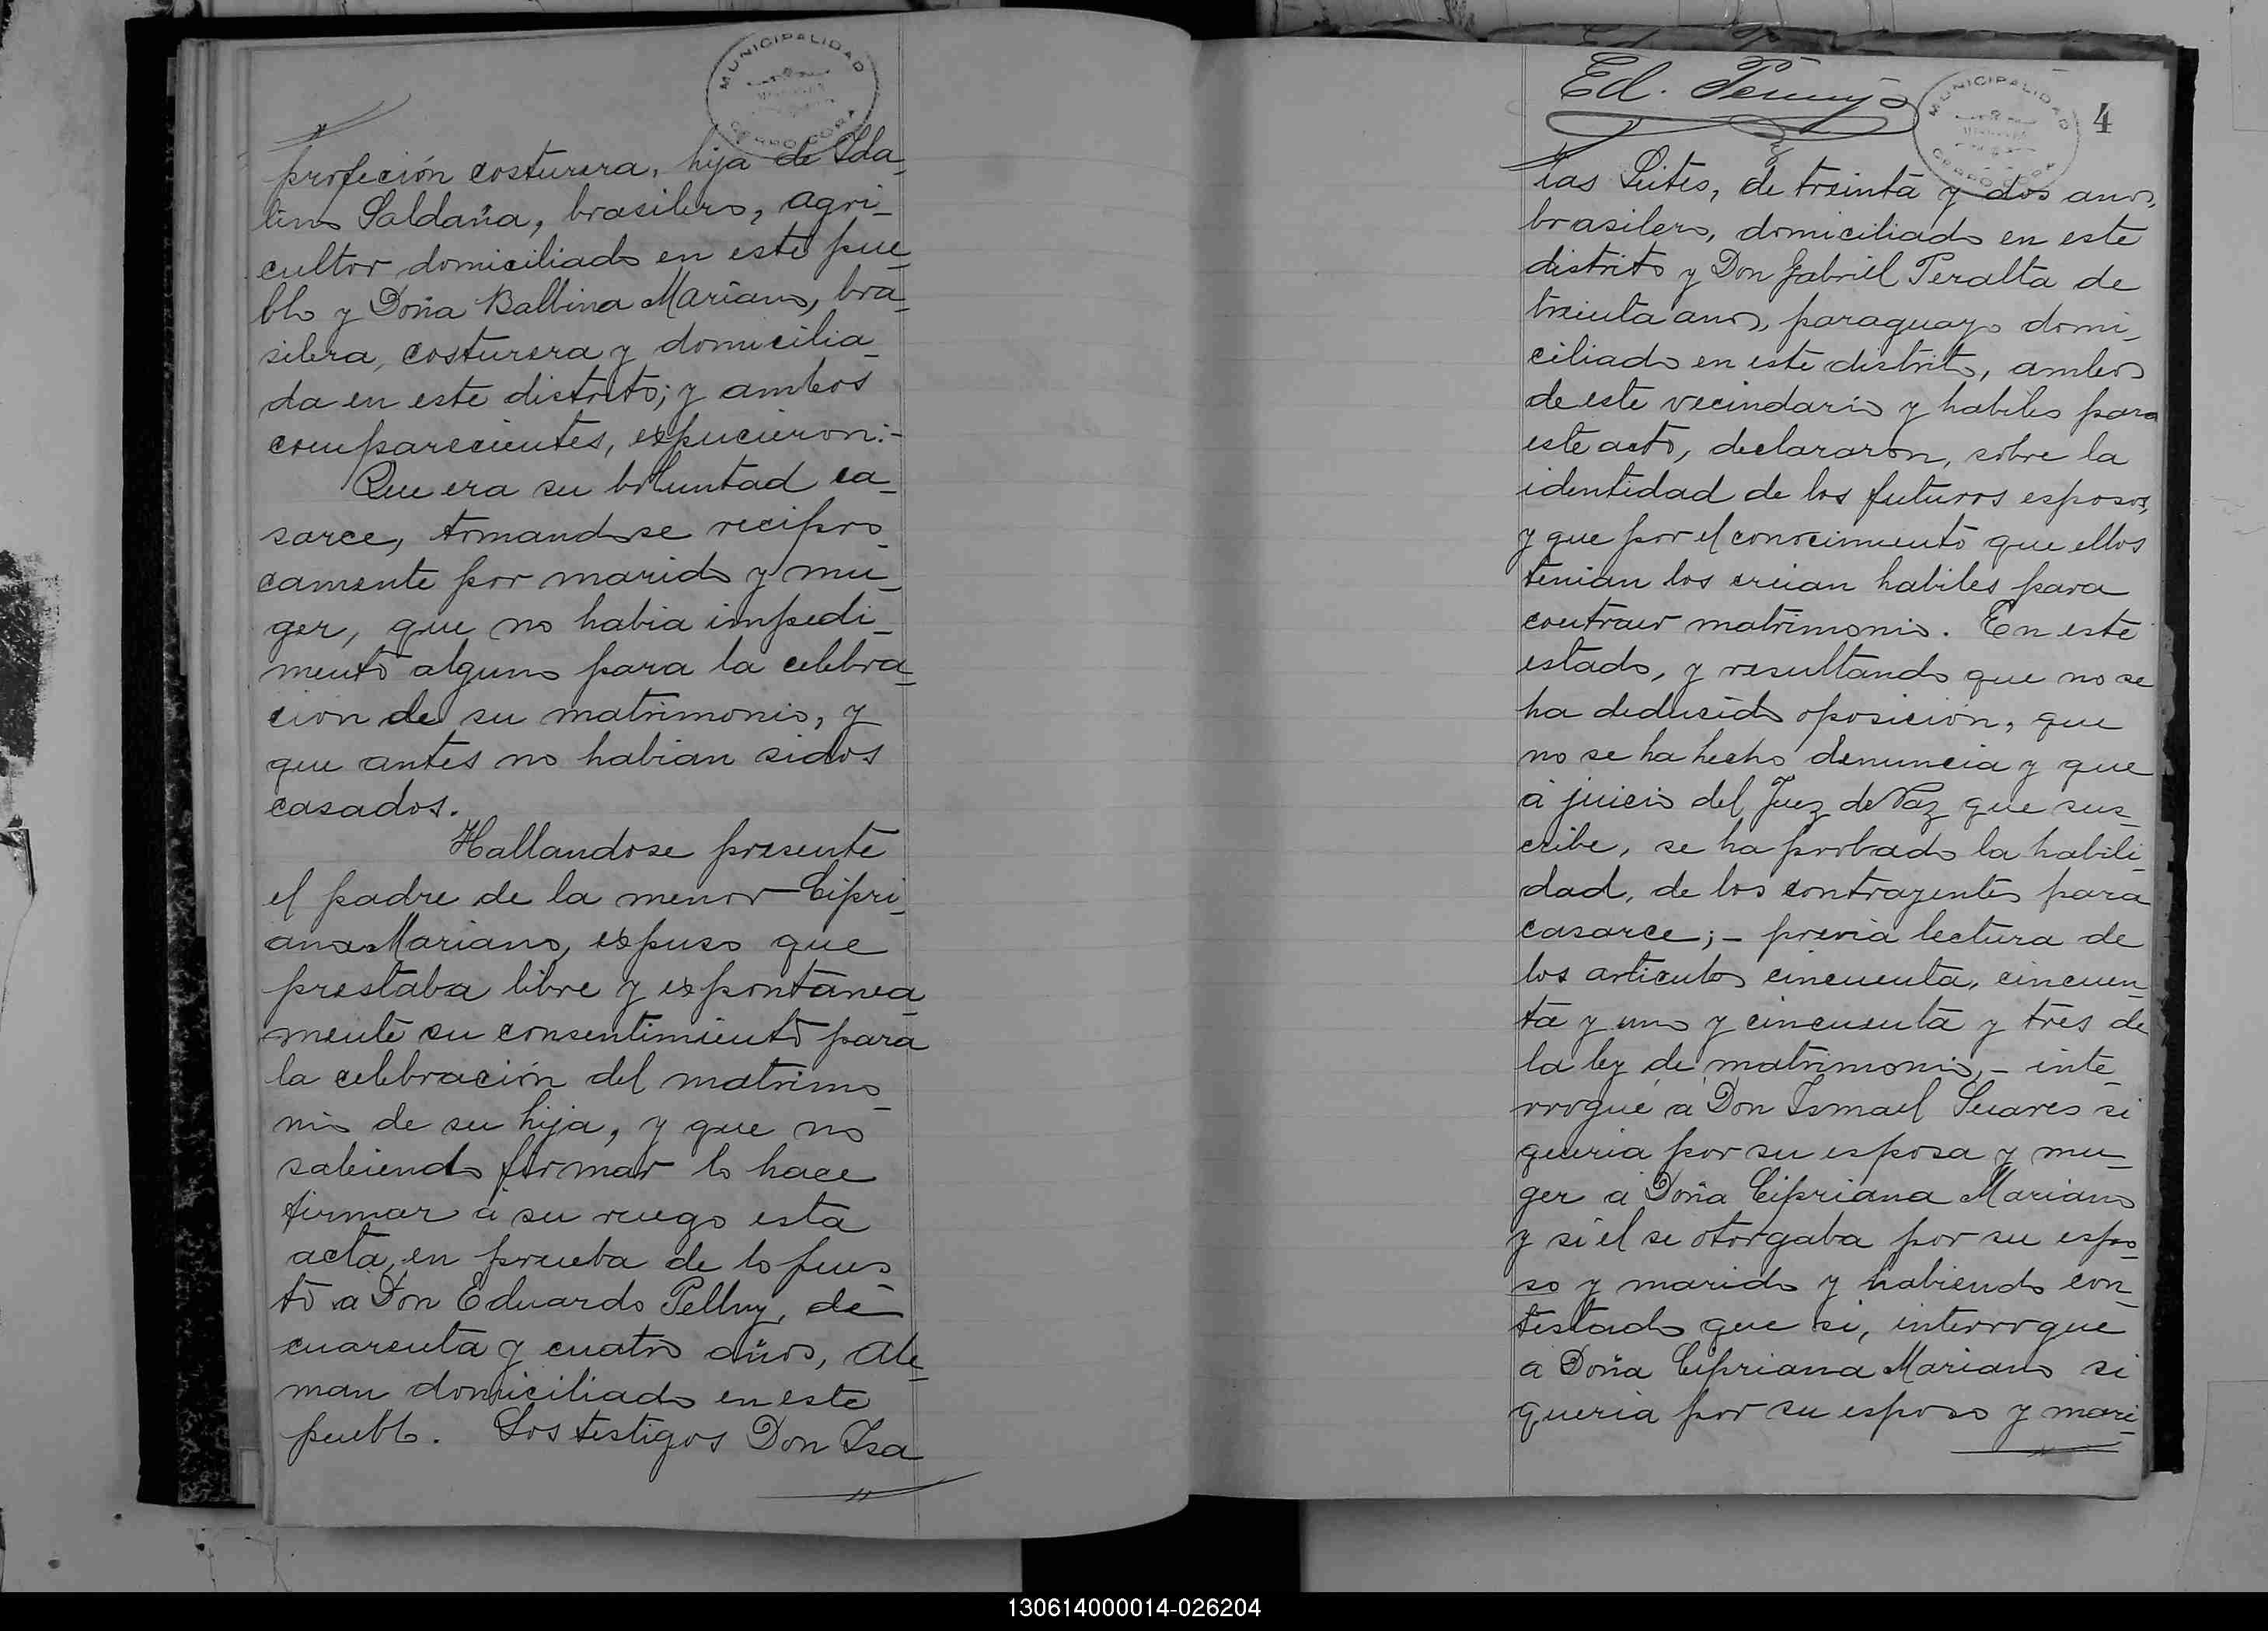 MUNICIPALIDAD
CERRO CORA
profeción costurera, hija de Ida_
lino Saldaña, brasilero, agri_
cultor domiciliado en este pue_
blo y Doña Balbina Mariano, bra_
silera, costurera y domicilia_
da en este distrito; y ambos
comparecientes, expucieron:-
Que era su boluntad ca_
sarce, tomandose recipro_
camente por marido y mu_
ger, que no habia impedi_
mento alguno para la celebra_
cion de su matrimonio, y
que antes no habian sidos
casados.
Hallandose presente
el padre de la menor Cipri_
ana Mariano, expuso que
prestaba libre y expontanea_
mente su consentimiento para
la celebración del matrimo_
nio de su hija, y que no
sabiendo firmar lo hace
firmar á su ruego esta
acta, en prueba de lo pues_
to a Don Eduardo Pellny, de
cuarenta y cuatro años, ale_
man domiciliado en este
pueblo. Los testigos Don Isa_
Ed.
MUNICIPALIDAD
CERRO CORA
4
ias Leites, de treinta y dos anos,
brasilero, domiciliado en este
distrito y Don Gabriel Peralta de
treinta anos, paraguayo domi_
ciliado en este distrito, ambos
de este vecindario y habiles para
este acto, declararon, sobre la
identidad de los futuros esposos,
y que por el conocimiento que ellos
tenian los creian habiles para
contraer matrimonio. En este
estado, y resultando que no se
ha deducido oposición, que
no se ha hecho denuncia y que
á juicio del Juez de Paz que sus_
cribe, se ha probado la habili_
dad, de los contrayentes para
casarce; - previa lectura de
los articulos cincuenta, cincuen_
ta y uno y cincuenta y tres de
la ley de matrimonio, - inte_
rrogué á Don Ismael Suares si
queria por su esposa y mu_
ger á Doña Cipriana Mariano
y si el se otorgaba por su espo_
so y marido y habiendo con_
testado que si, interrogue
á Doña Cipriana Mariano si
queria por su esposo y mari_
130614000014-026204